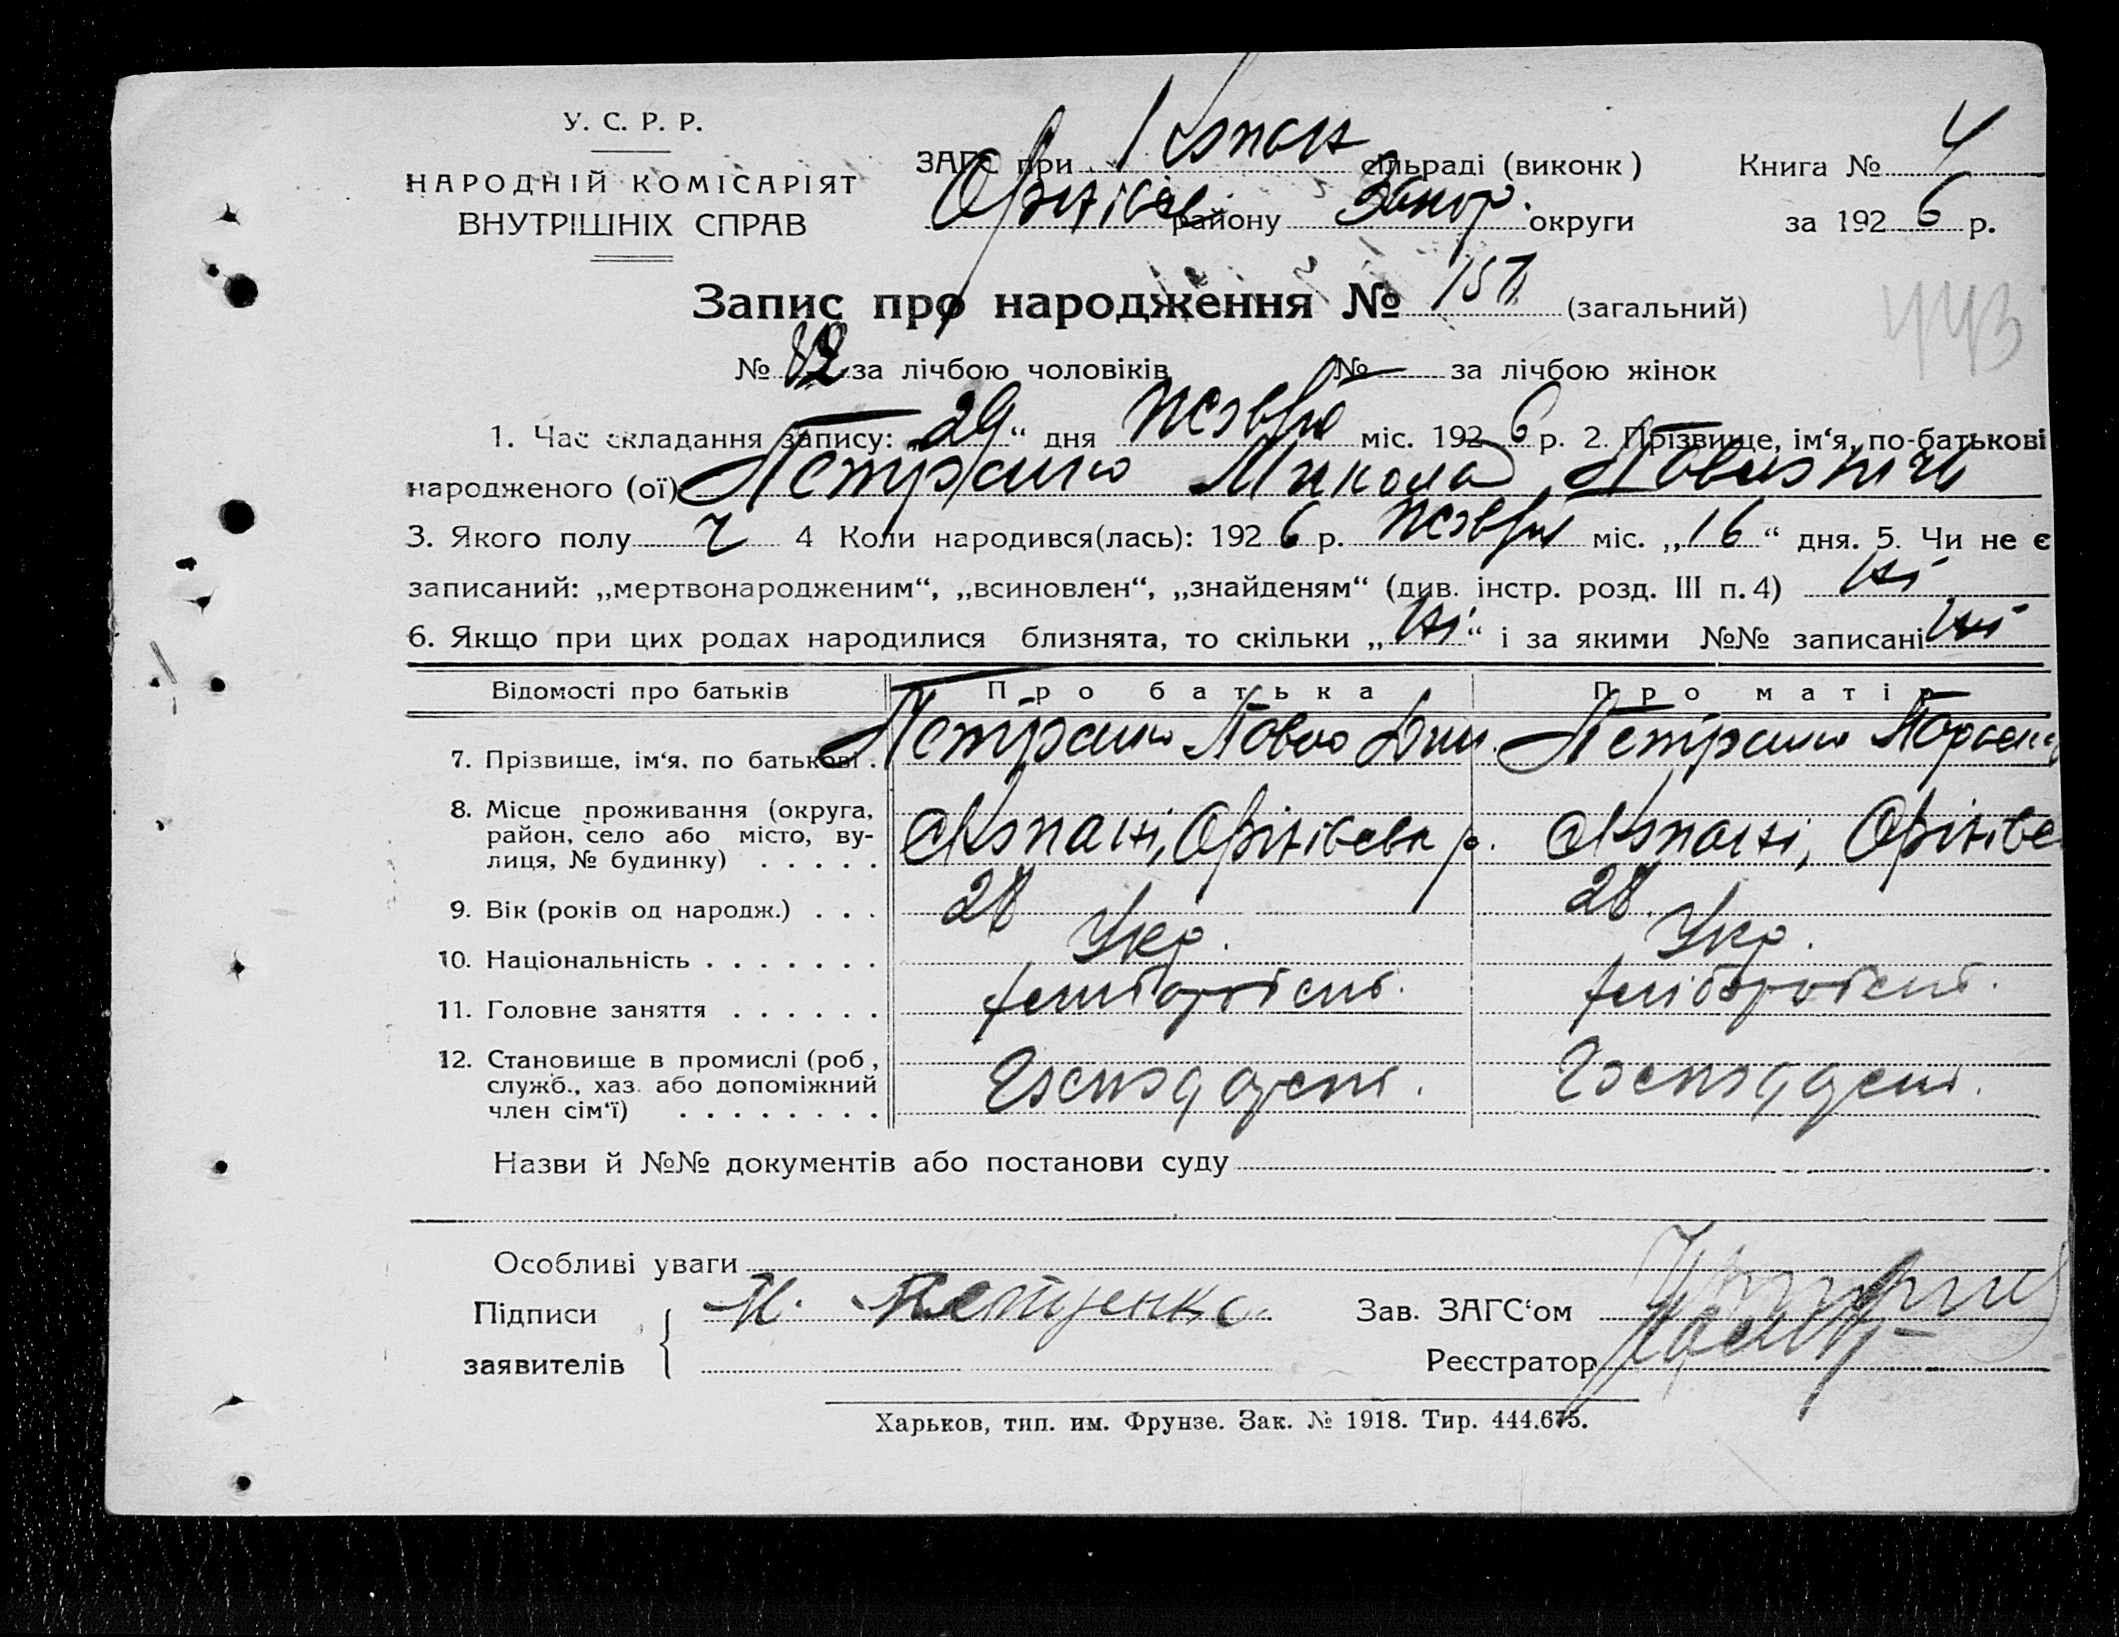 У. С. Р. Р.
НАРОДНІЙ КОМІСАРІЯТ
ВНУТРІШНІХ СПРАВ
ЗАГС при І Копан сільраді (виконк) Книга № 4
Оріхівськ району Запор. округи за 1926 р.
Запис про народження № 157 (загальний)
443
№ 82 за лічбою чоловіків № — за лічбою жінок
1. Час складання запису: „29“ дня жовтня міс. 1926 р. 2. Прізвище, ім‘я, по-батькові
народженого (ої) Петрашко Микола Павлович
3. Якого полу ч 4 Коли народився(лась): 1926 р. жовтня міс. „16“ дня. 5. Чи не є
записаний: „мертвонародженим“, „всиновлен“, „знайденям“ (див. інстр. розд. III п. 4) ні
6. Якщо при цих родах народилися близнята, то скільки „ні“ і за якими №№ записані ні
Відомості про батьків Про батька Про матір
7. Прізвище, ім‘я, по батькові . Петрашко Павло Петрашко
8. Місце проживання (округа, район, село або місто, вулиця, № будинку) . . . . . Копані, Оріхівськ р. Копані, Оріхівс
9. Вік (років од народж.) . . . 28 28
10. Національність . . . . . . . Укр. Укр.
11. Головне заняття . . . . . . хлібороб хлібороб
12. Становище в промислі (роб, служб., хаз. або допоміжний член сім‘ї) . . . . . . . . Господар Господар
Назви й №№ документів або постанови суду
Особливі уваги
Підписи заявителів Зав. ЗАГС‘ом
Реєстратор
Харьков, тип. им. Фрунзе. Зак. № 1918. Тир. 444.675.